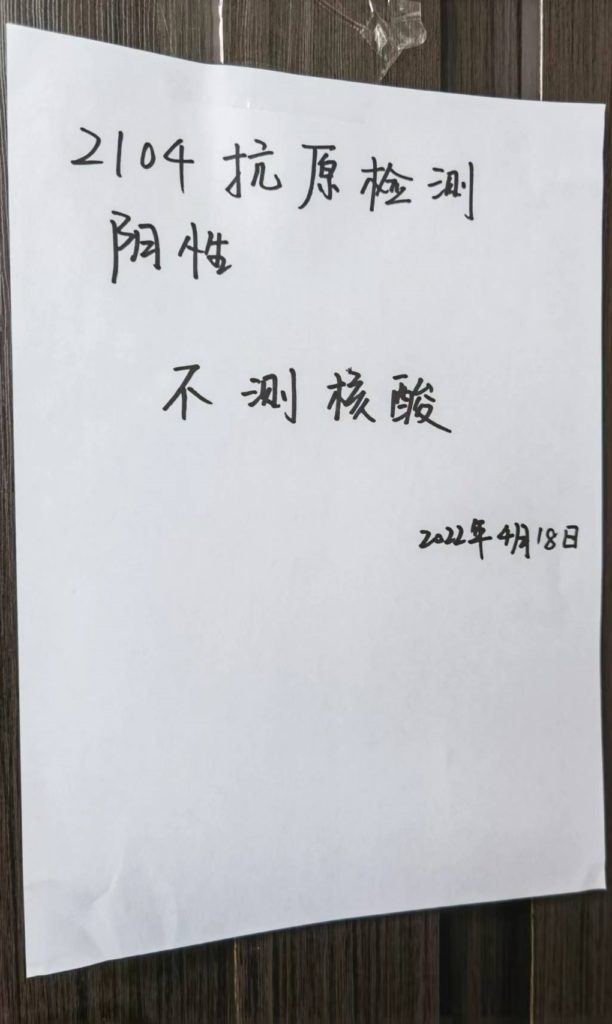 2104抗原检测
阴性
不测核酸
2022年4月18日